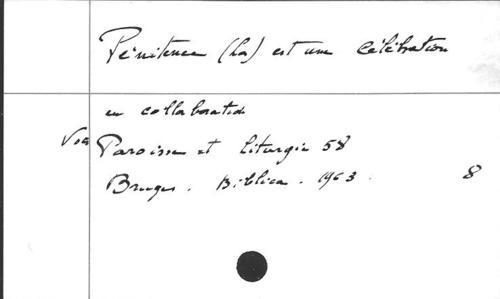 Pénitence (La) est une célébration
en collaboration
Voir Paroisse et Liturgie 58
Bruges. Biblica. 1963. 8